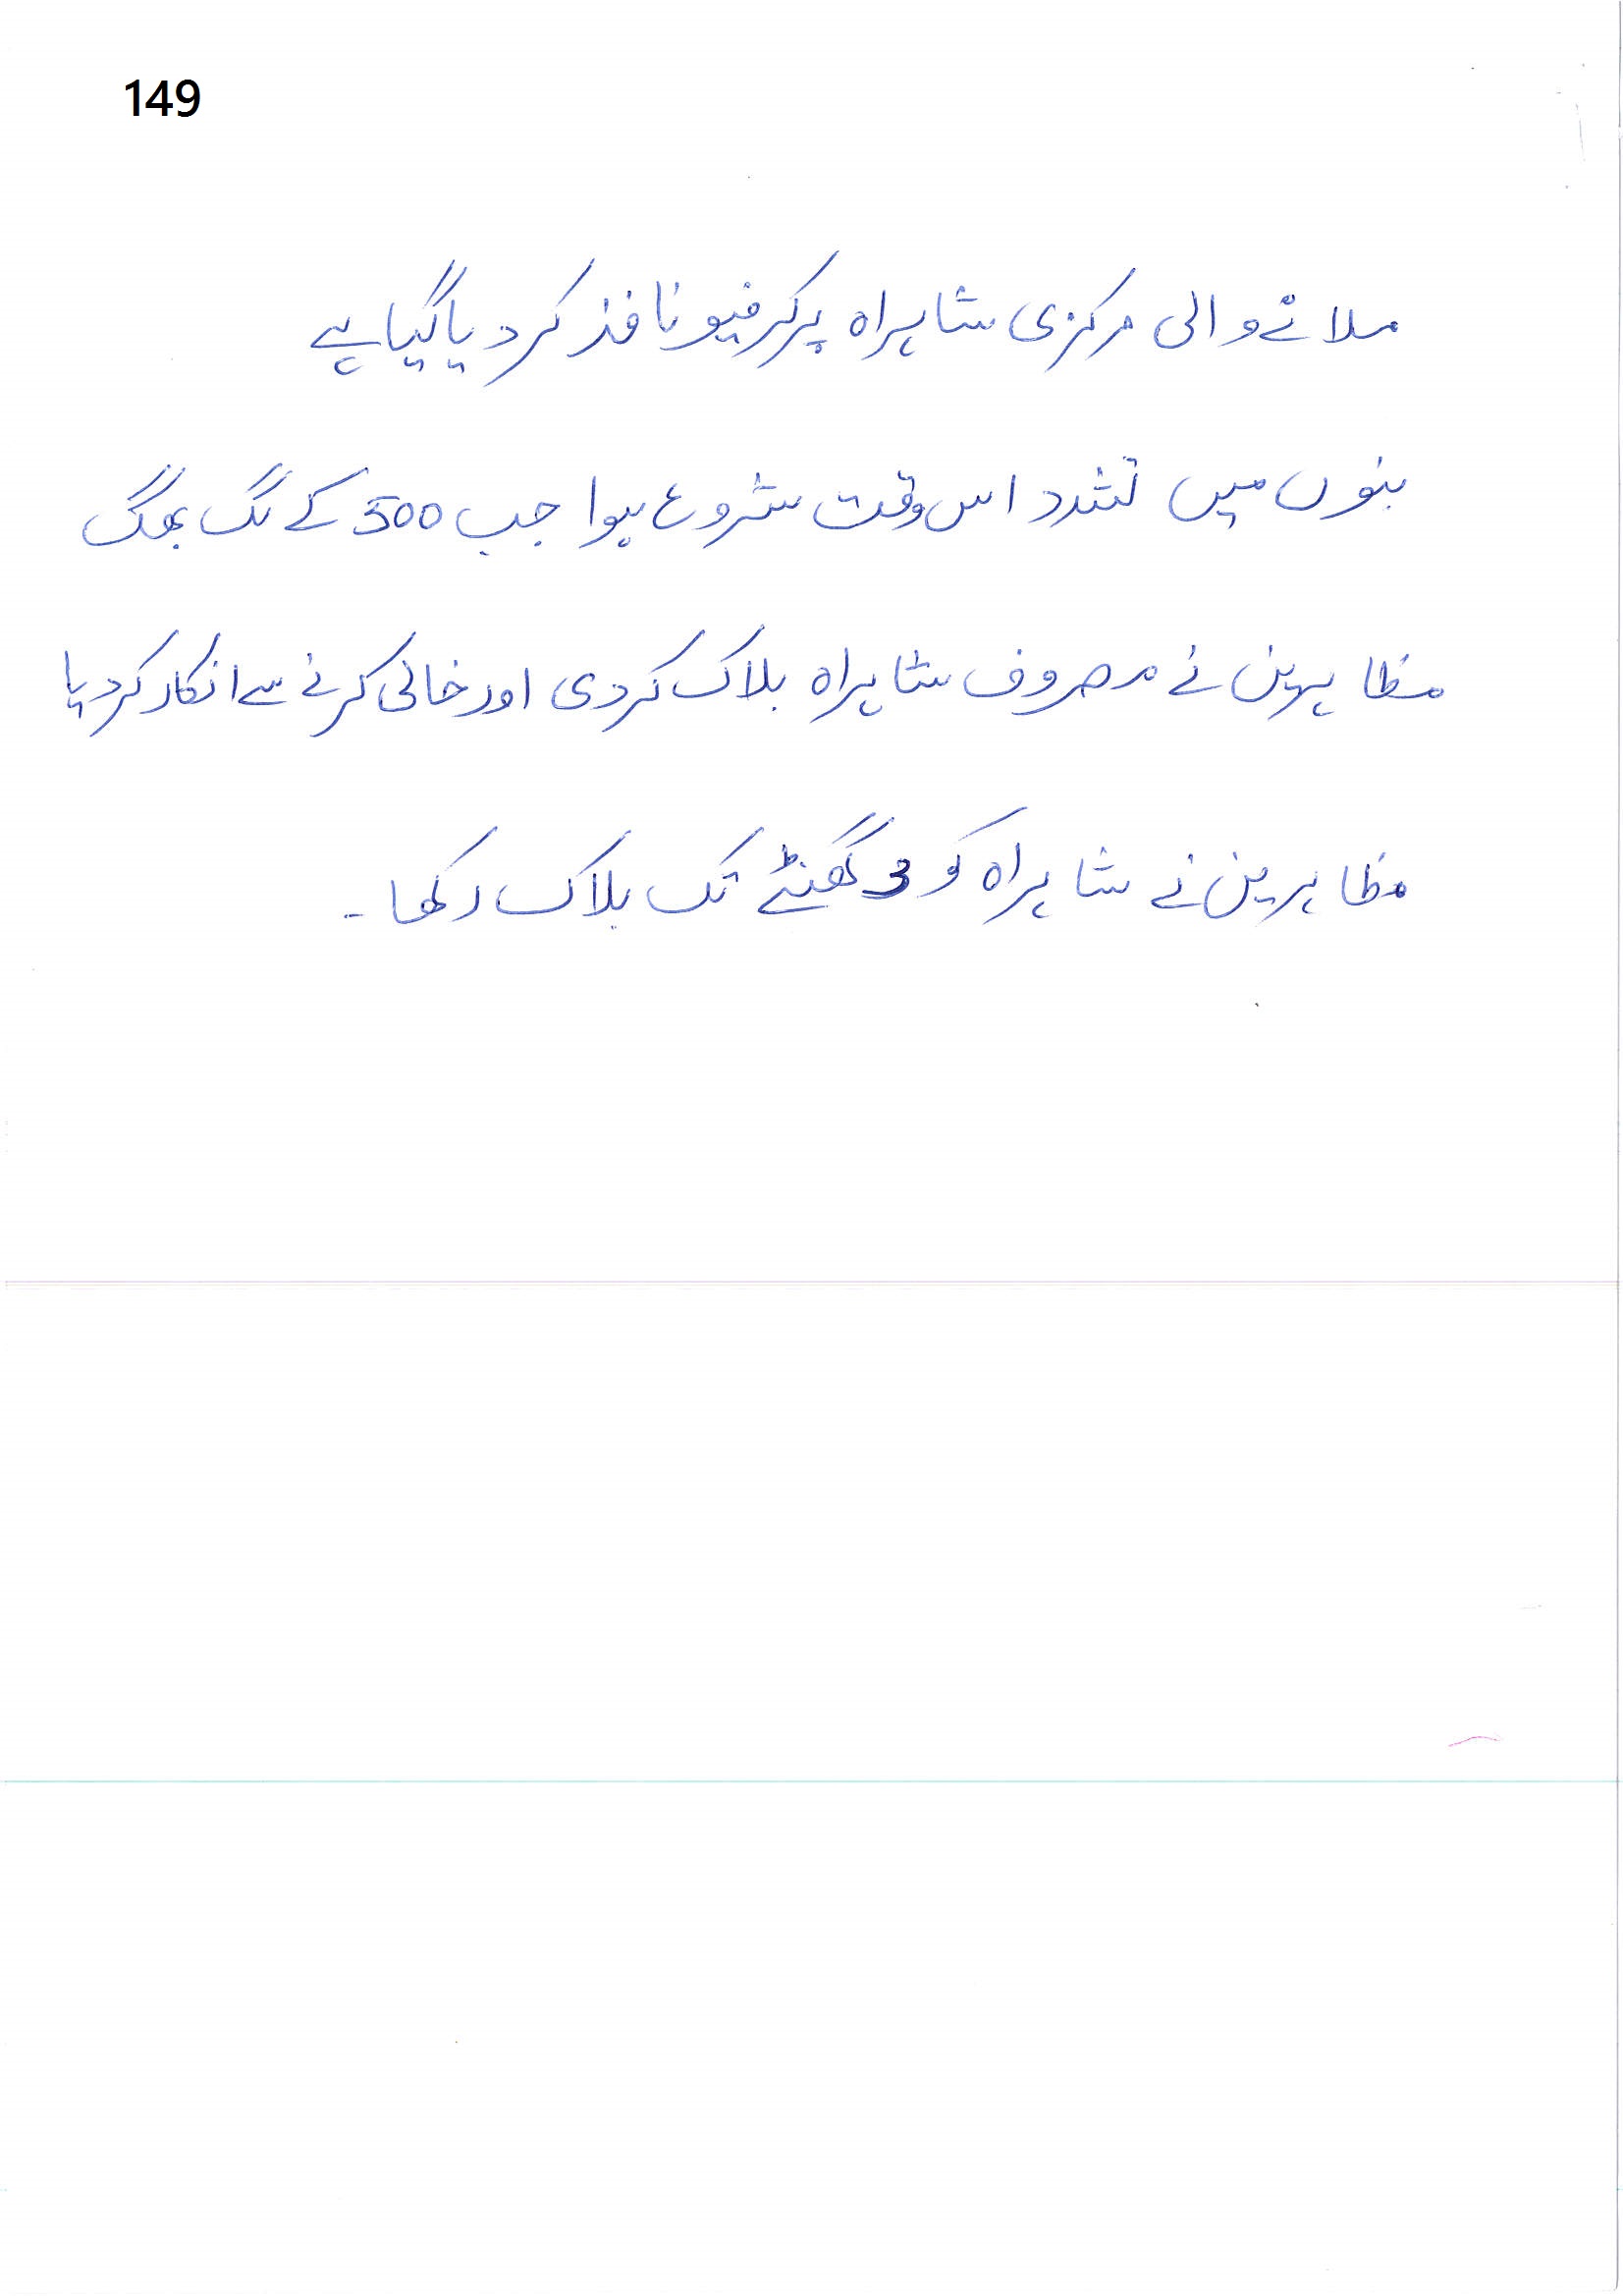 149
ملانے والی مرکزی شاہراہ پر کرفیو نافذ کر دیا گیا ہے
بنوں میں تشدد اس وقت شروع ہوا جب 500 کے لگ بھگ
مظاہرین نے مصروف شاہراہ بلاک کر دی اور خالی کرنے سے انکار کر دیا
مظاہرین نے شاہراہ کو 3 گھنٹے تک بلاک رکھا۔